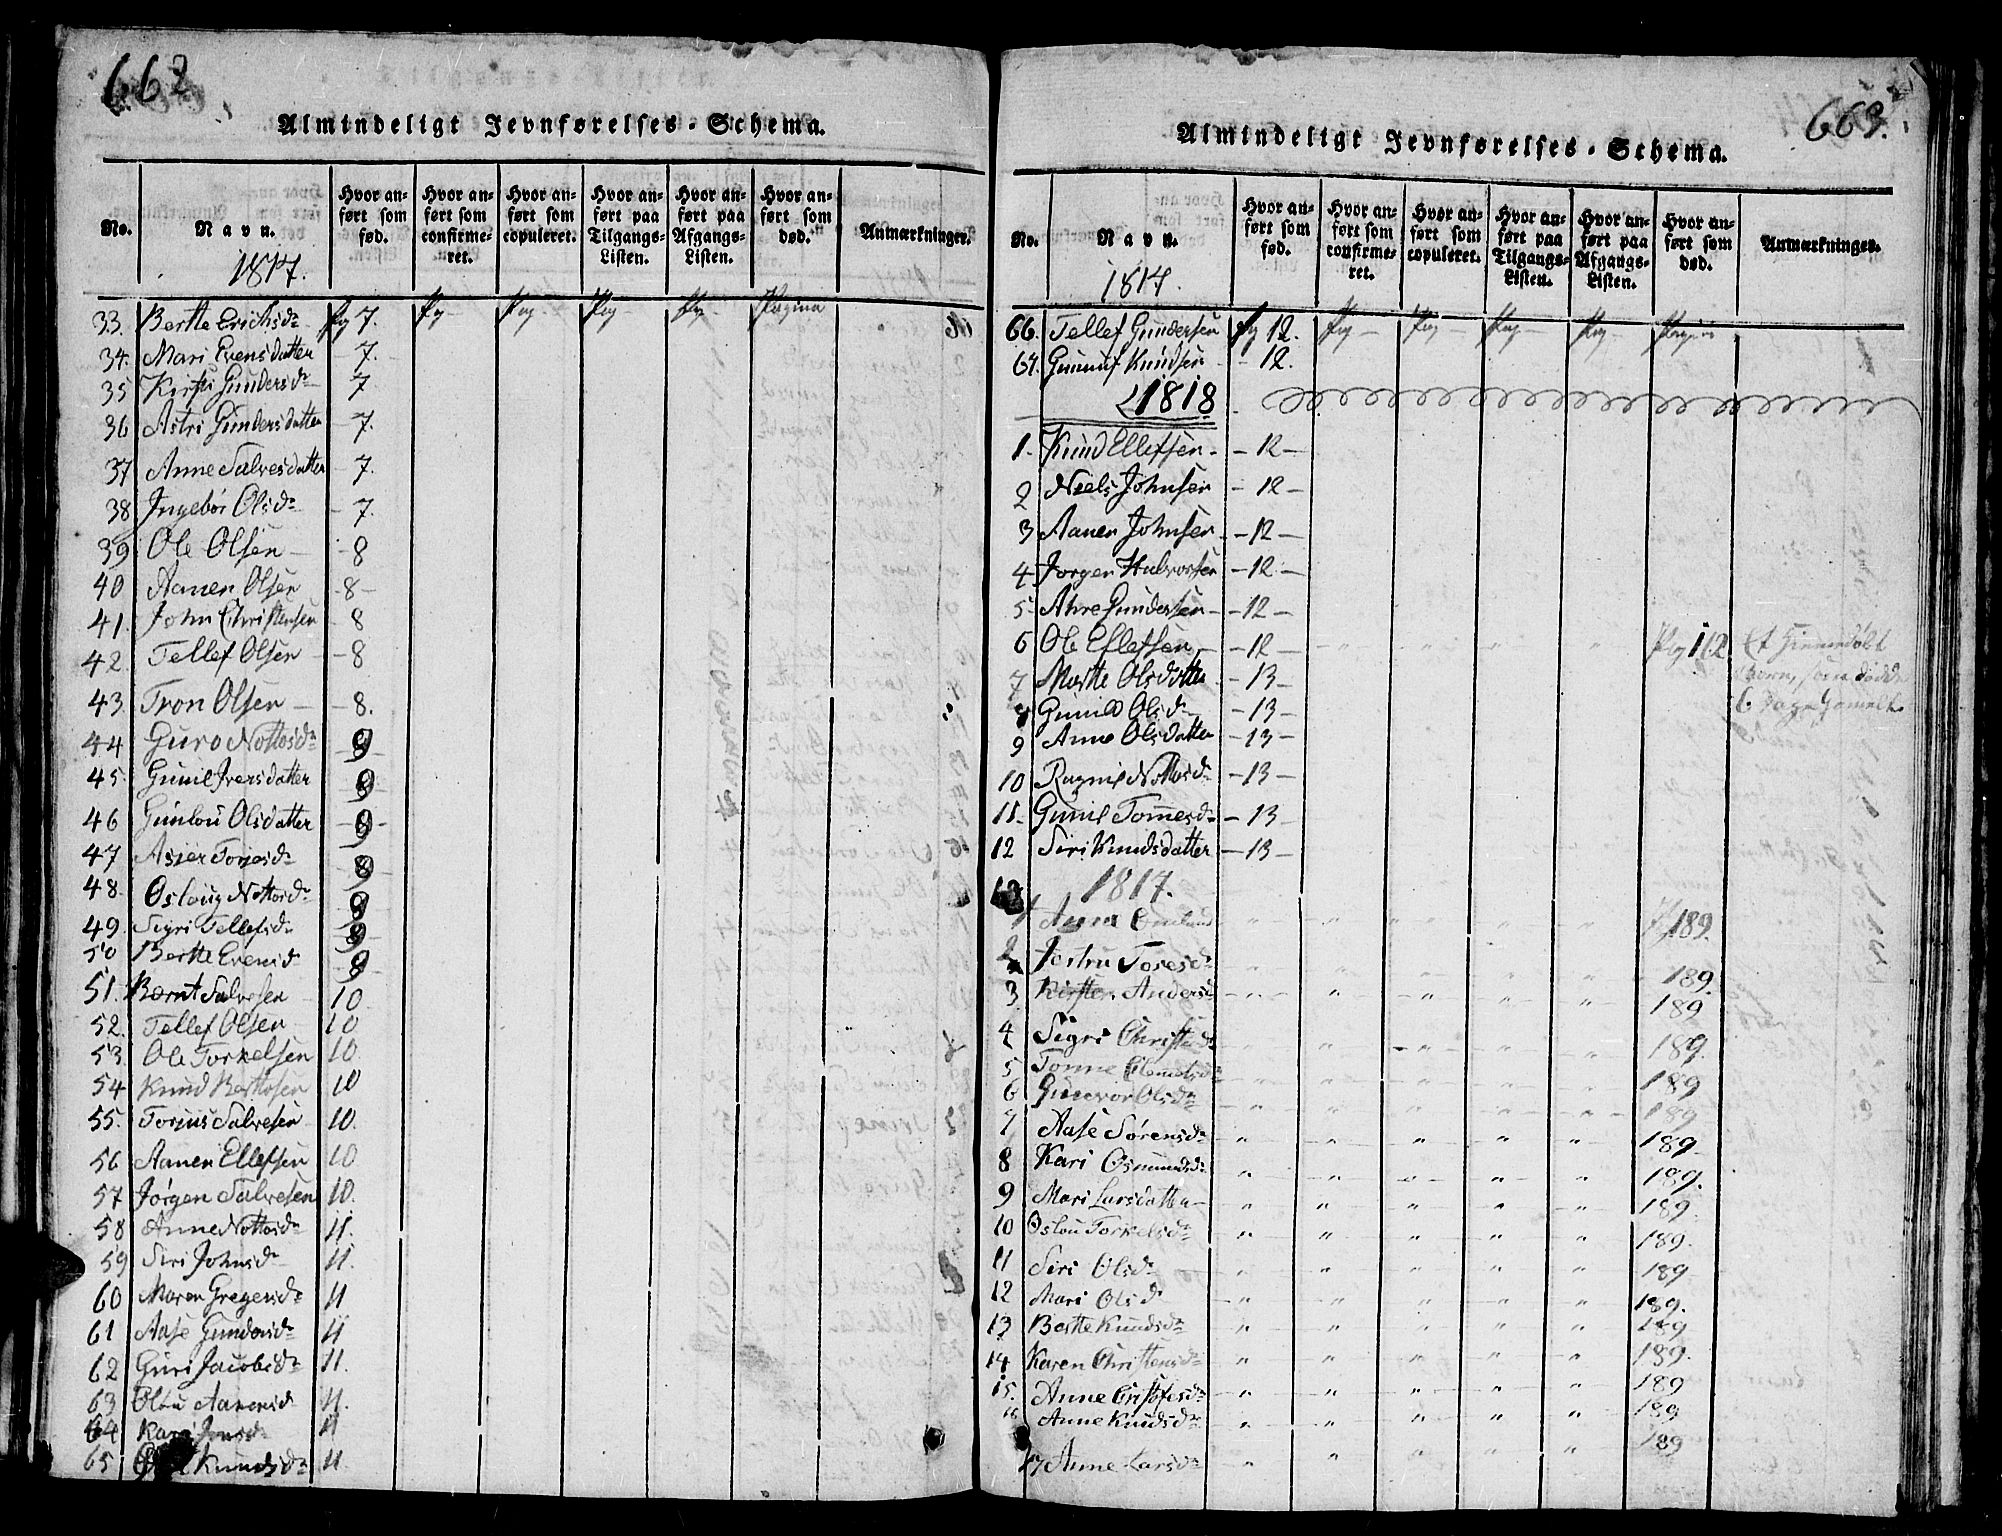 662
Almindeligt Jevnførelses-Schema.
No.
Navn.
1817.
Hvor anført som fød.
Hvor anført som confirmeret.
Hvor anført som copuleret.
Hvor anført paa Tilgangs-Listen.
Hvor anført paa Afgangs-Listen.
Hvor anført som død.
Anmærkninger.
33. Berthe Erichsd. Pag 7. Pag Pag Pag Pag Pagina
34. Mari Evensdatter – 7.
35 Kirsti Gundersd. 7
36 Astri Gundersdatter – 7.
37 Anne Salvesdatter – 7.
38 Ingebor Olsd. – 7.
39 Ole Olsen – 8
40 Aanen Olsen – 8 –
41. John Christensen – 8
42. Tellef Olsen – 8
43. Tron Olsen – 8.
44 Guro Nottosd. 9
45. Gunil Iversdatter 9
46 Gunlou Olsdatter 9
47 Asier Torjesd. 9
48. Osloug Nottosd. 9
49. Sigri Tellefsd. 9
50 Berthe Evensd. 9
51. Bernt Salvesen 10
52. Tellef Olsen 10
53. Ole Torkelsen 10.
54 Knud Berthosen 10
55. Torjus Salvesen 10.
56 Aanen Ellefsen 10
57 Jørgen Salvesen 10.
58 Anne Nottosd. 11.
59 Siri Johnsd. 11.
60 Maren Gregersd. 11
61 Aase Gundersd. 11
62 Guri Jacobsd. 11.
63 Olou Aanensd 11.
64 Kari Jensd. 11
65 Knudsd. 11
663.
Almindeligt Jevnførelses-Schema.
No.
Navn.
1817.
Hvor anført som fød.
Hvor anført som confirmeret.
Hvor anført som copuleret.
Hvor anført paa Tilgangs-Listen.
Hvor anført paa Afgangs-Listen.
Hvor anført som død.
Anmærkninger.
66. Tellef Gundersen Pag 12. Pag Pag Pag Pag Pagina
67. Gunnuf Knudsen – 12.
1818
1. Knud Ellefsen – 12 –
2 Niels Johnsen – 12 –
3 Aanen Johnsen – 12 –
4 Jorgen Halvorsen – 12 –
5 Ahre Gundersen – 12 –
6 Ole Ellefsen – 12 – Pag 112. Et Hiemdøbt
Barn, som døde
6 Dage Gamelt
7 Marthe Olsdatter – 13 –
8 Gunild Olsd. – 13 –
9 Anne Olsdatter – 13 –
10 Ragnil Nottosd. – 13 –
11. Gunil Tommesd. – 13
12 Siri Knudsdatter – 13 –
1817.
1 Anna 189.
2 Jertru Tosesd. 189.
3 Kirsten Andersd 189
4 Sigri Christensd. 189.
5 Tonne Clemetsd. 189
6 Gunvor Olsd. 189
7 Aase Sørensd. 189.
8 Kari Osmundsd. 189.
9 Mari Larsdatter 189.
10 Oslou Torkelsd. 189.
11 Siri Olsd. 189
12 Mari Olsd. 189.
13 Berthe Knudsd. 189
14 Karen Christensd. 189.
15. Anne Cristofesd. 189
16 Anne Knudsd. 189
17 Anne Larsd. 189